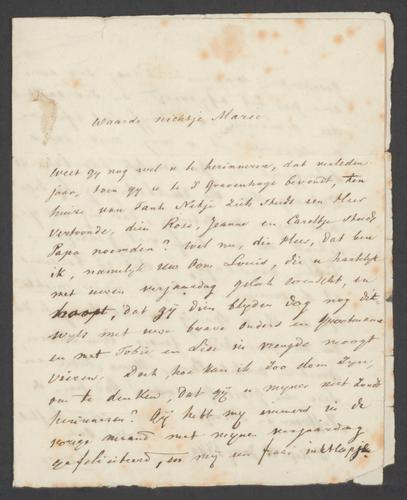 Waarde nichtje Marie
Weet gij nog wel u te herinneren, dat verleden
jaar, toen gij u te 's Gravenhage bevondt, ten
huize van Tante Netje zich steeds een Heer
vertoonde, dien Rose, Jeanne en Careltje steeds
Papa noemden? Wel nu, die Heer, dat ben
ik, namelijk uw Oom Louis, die u hartelijk
met uwen verjaardag geluk wenscht, en
hoopt, dat gij dien blyden dag nog dik
wyls met uwe brave ouders en Grootmama
en met Tobie en Lise in vreugde moogt
vieren. Doch hoe kan ik zoo dom zyn,
om te denken, dat gij u mijner niet zoudt
herinneren? Gij hebt my immers in de
vorige maand met mynen verjaardag
gefeliciteerd, en mij een fraai inktlapje